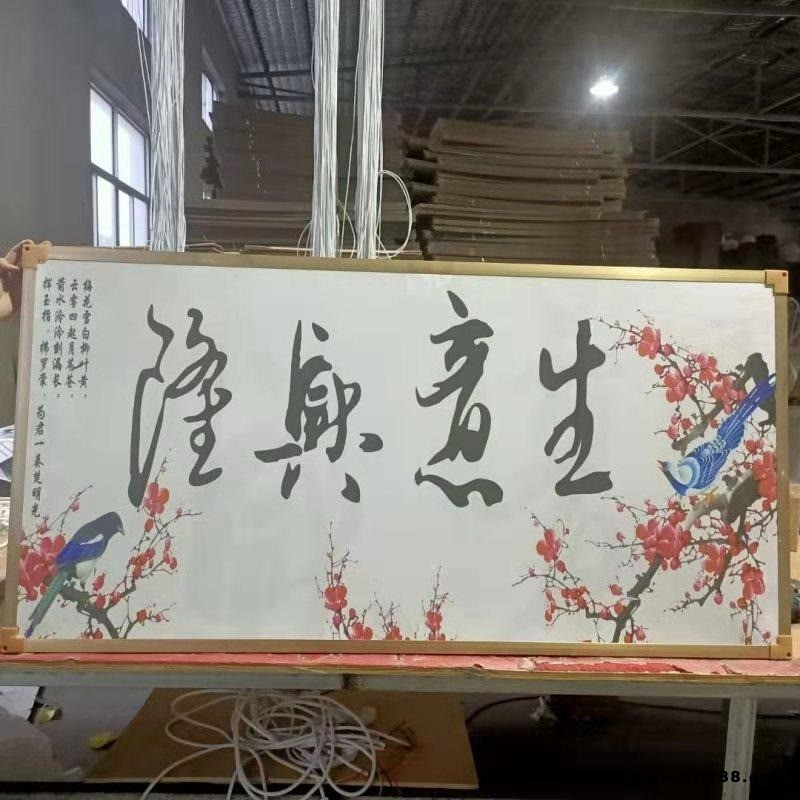 生意興隆
梅花雪白柳叶黄，
云雾四起月苍苍，
箭水泠泠刻漏长。
挥玉指，拂罗裳，为君一奏楚明光